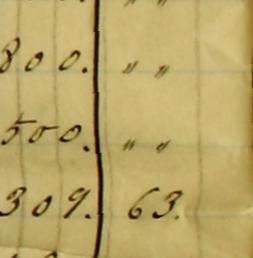 " "
800. " "
500. " "
309. 63.